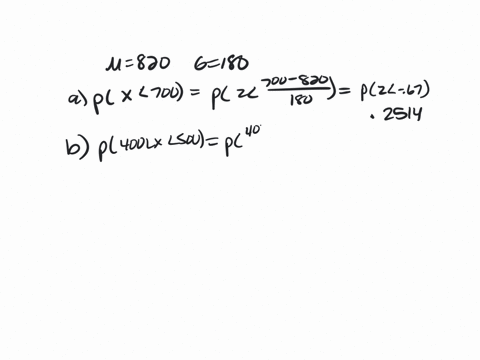 μ=820 σ=180
a) P( x <700) = P( z< (700-820)/180 ) = P(z<-.67)
.2514
b) P( 400<x <500) = P( 40